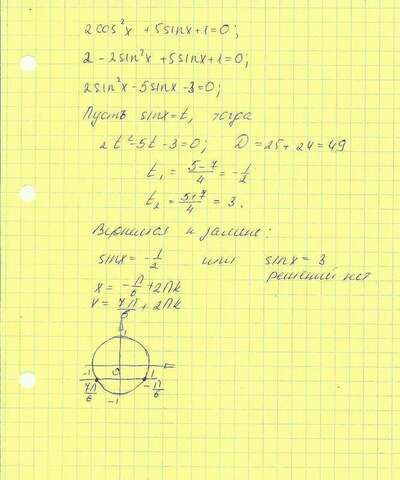 2cos²x + 5sinx + 1 = 0;
2 - 2sin²x + 5sinx + 1 = 0;
2sin²x - 5sinx - 3 = 0;
Пусть sinx = t, тогда
2t² - 5t - 3 = 0; D = 25 + 24 = 49
t₁ = (5-7)/4 = -1/2
t₂ = (5+7)/4 = 3.
Вернемся к замене:
sinx = -1/2 или sinx = 3
решений нет
x = -π/6 + 2πk
x = 7π/6 + 2πk
1
-1 0 1
7π/6 -π/6
-1